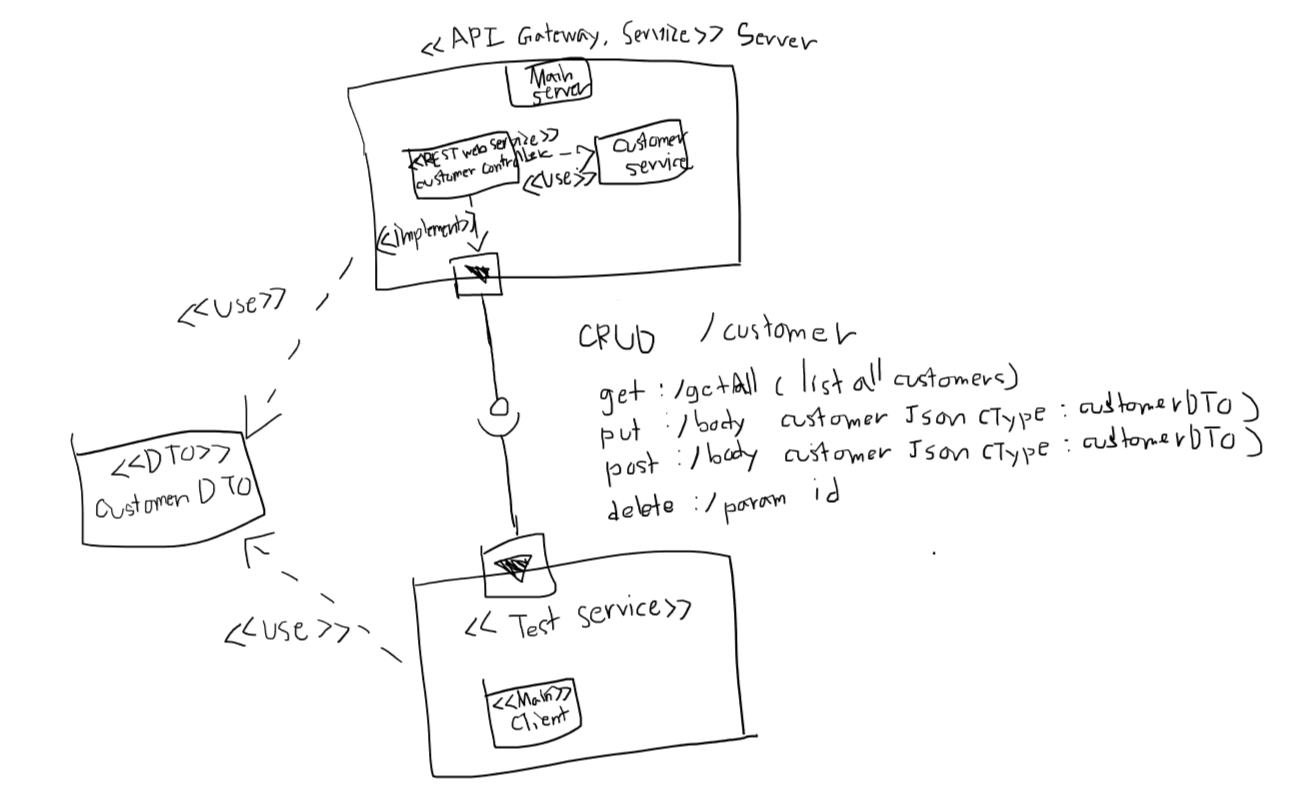 <<API Gateway, Service>> Server
Main
server
<<REST web service>>
customer controller
<<use>>
customer
service
<<implement>>
<<use>>
CRUD /customer
get :/getAll ( list all customers)
put :/body customer Json CType : customerDTO )
post :/body customer Json CType : customerDTO )
delete :/param id
<<DTO>>
Customer DTO
<<use>>
<< Test service>>
<<Main>>
Client